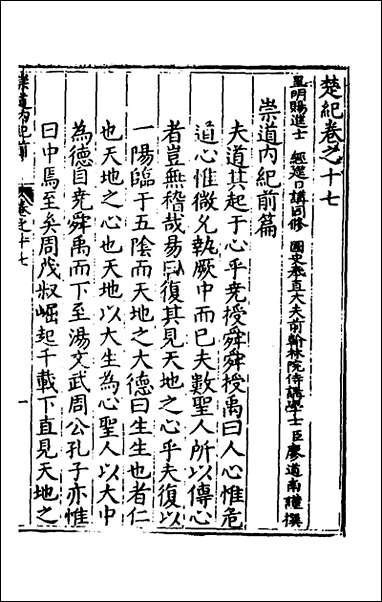 楚紀卷之十七
皇明賜進士 經筵日講同修 國史奉直大夫前翰林院侍講學士臣廖道南謹撰
崇道內紀前篇
夫道其起于心乎堯授舜舜授禹曰人心惟危
道心惟微允執厥中而已夫數聖人所以傳心
者豈無稽哉易曰復其見天地之心乎夫復以
一陽臨于五陰而天地之大德曰生生也者仁
也天地之心也天地以大生為心聖人以大中
為德自堯舜禹而下至湯文武周公孔子亦惟
曰中焉至矣周茂叔崛起千載下直見天地之
卷之十七
一